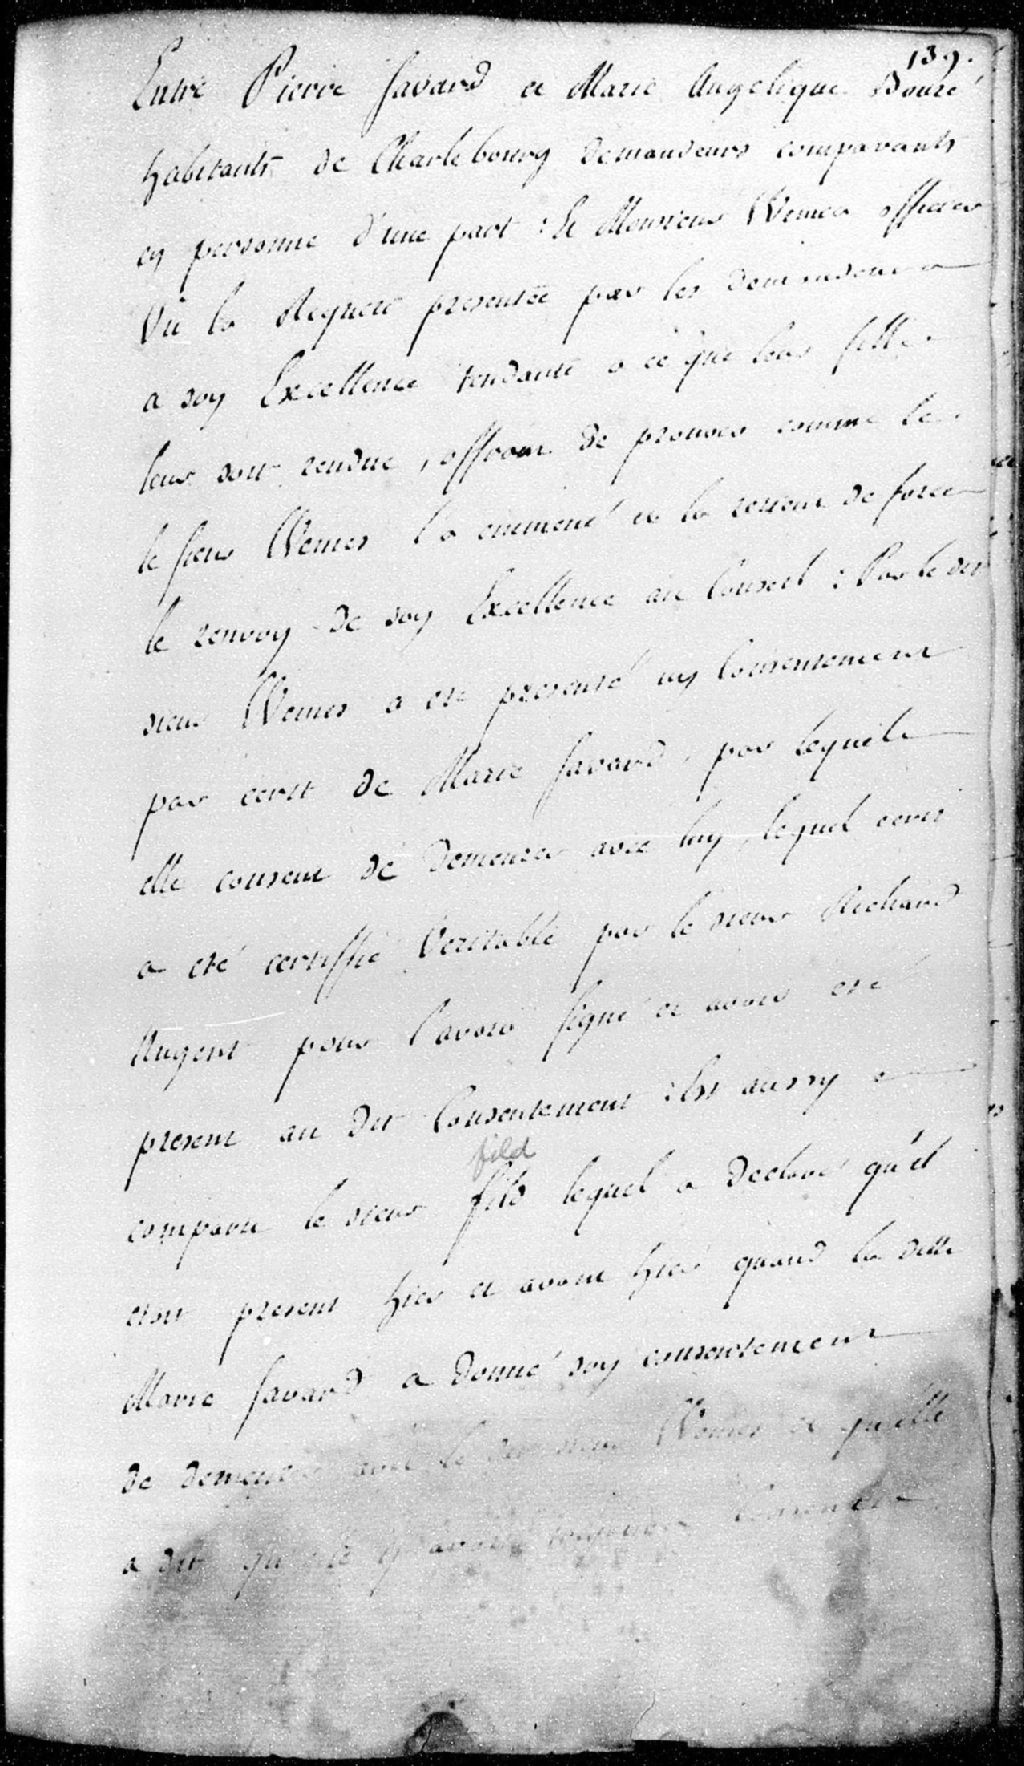 139.
Entre Pierre Savard et Marie Angelique Bouré
habitants de Charlebourg demandeurs comparants
en personne d'une part : Le Monsieur Wemes officier
Vu la Requete presentée par les demandeurs
a son Excellence tendante a ce que leur fille
leur soit rendue, offrant de prouver comme le
le sieur Wemes l'a emmené et la retient de force
le renvoy de son Excellence au Conseil : Par le dit
sieur Wemes a eté presenté un Consentement
par ecrit de Marie Savard, par lequel
elle consent de demeurer avec luy, lequel ecrit
a eté certiffié Veritable par le sieur Richard
Nugent pour l'avoir signé et avoir eté
present au dit Consentement : Est aussy
fild
comparu le sieur fild lequel a declaré qu'il
etoit present hier et avant hier quand la ditte
Marie Savard a donné son consentement
de demeurer avec le dit sieur Wemes et qu'elle
a dit qu'elle y avoit toujours